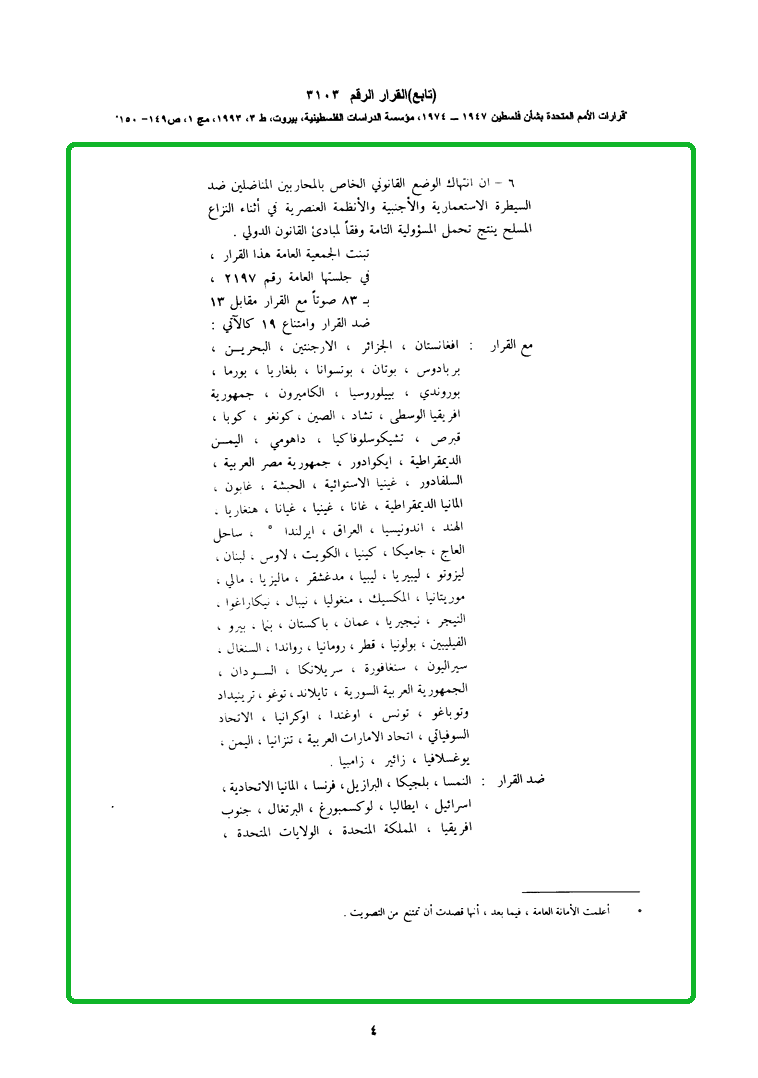 (تابع)القرار الرقم ٣١٠٣
"قرارات الأمم المتحدة بشأن فلسطين ١٩٤٧ ـ ١٩٧٤، مؤسسة الدراسات الفلسطينية، بيروت، ط ٣، ١٩٩٣، مج ١، ص١٤٩- ١٥٠"
٦ - ان انتهاك الوضع القانوني الخاص بالمحاربين المناضلين ضد
السيطرة الاستعمارية والأجنبية والأنظمة العنصرية في أثناء النزاع
المسلح ينتج تحمل المسؤولية التامة وفقاً لمبادئ القانون الدولي .
تبنت الجمعية العامة هذا القرار ،
في جلستها العامة رقم ٢١٩٧ ،
بـ ٨٣ صوتاً مع القرار مقابل ١٣
ضد القرار وامتناع ١٩ كالآتي :
مع القرار : افغانستان ، الجزائر ، الارجنتين ، البحريـن ،
بربادوس ، بوتان ، بوتسوانا ، بلغاريا ، بورما ،
بوروندي ، بييلوروسيا ، الكاميرون ، جمهورية
افريقيا الوسطى ، تشاد ، الصين ، كونغو ، كوبا ،
قبرص ، تشيكوسلوفاكيا ، داهومي ، اليمـن
الديمقراطية ، ايكوادور ، جمهورية مصر العربية ،
السلفادور ، غينيا الاستوائية ، الحبشة ، غابون ،
المانيا الديمقراطية ، غانا ، غينيا ، غيانا ، هنغاريا .
الهند ، اندونيسيا ، العراق ، ايرلندا ° ، ساحل
العاج ، جاميكا ، كينيا ، الكويت ، لاوس ، لبنان ،
ليزوتو ، ليبيريا ، ليبيا ، مدغشقر ، ماليزيا ، مالي ،
موريتانيا ، المكسيك ، منغوليا ، نيبال ، نيكاراغوا ،
النيجر ، نيجيريا ، عمان ، باكستان ، بنما . بيرو ،
الفيليبين ، بولونيا ، قطر ، رومانيا ، رواندا ، السنغال ،
سيراليون ، سنغافورة ، سريلانكا ، السـودان ،
الجمهورية العربية السورية ، تايلاند، توغو ، ترينيداد
وتوباغو ، تونس ، اوغندا ، اوكرانيا ، الاتحاد
السوفياتي ، اتحاد الامارات العربية ، تنزانيا ، اليمن ،
يوغسلافيا ، زائير ، زامبيا .
ضد القرار : النمسا ، بلجيكا ، البرازيل ، فرنسا ، المانيا الاتحادية ،
اسرائيل ، ايطاليا ، لوكسمبورغ ، البرتغال ، جنوب
افريقيا ، المملكة المتحدة ، الولايات المتحدة ،
• أعلمت الأمانة العامة ، فيما بعد ، أنها قصدت أن تمتنع من التصويت .
٤